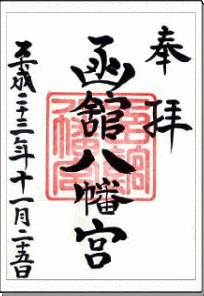 奉拝
函館八幡宮
平成二十三年十一月二十五日